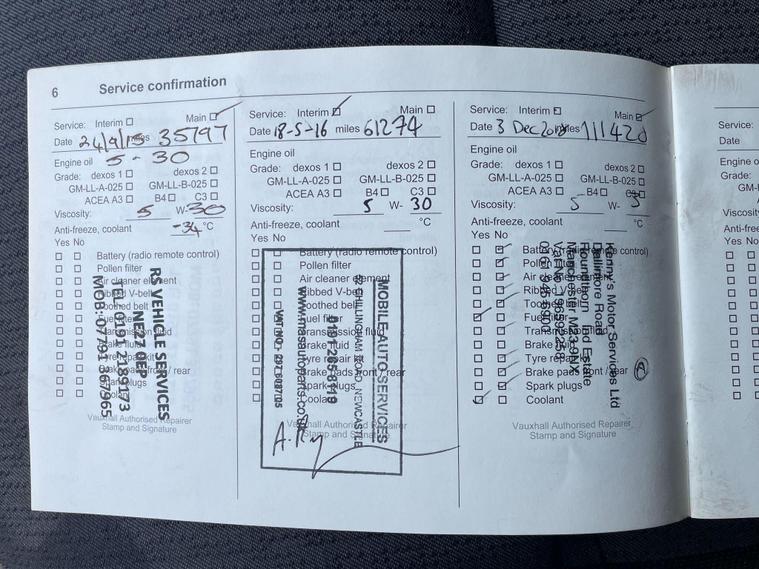 6 Service confirmation
Service: Interim ☐ Main ☐
Date 24/9/15 miles 35797
Engine oil 5-30
Grade: dexos 1 ☐ dexos 2 ☐
GM-LL-A-025 ☐ GM-LL-B-025 ☐
ACEA A3 ☐ B4 ☐ C3 ☐
Viscosity: 5 W- 30
Anti-freeze, coolant -34 °C
Yes No
Battery (radio remote control)
Pollen filter
Air cleaner element
Ribbed V-belt
Toothed belt
Fuel filter
Transmission fluid
Brake fluid
Tyre repair kit
Brake pads front / rear
Spark plugs
Coolant
Vauxhall Authorised Repairer
Stamp and Signature
RS VEHICLE SERVICES
NE27 0EP
TEL 0191 2189173
MOB: 07791 367965
Service: Interim ☐ Main ☐
Date 18-5-16 miles 61274
Engine oil
Grade: dexos 1 ☐ dexos 2 ☐
GM-LL-A-025 ☐ GM-LL-B-025 ☐
ACEA A3 ☐ B4 ☐ C3 ☐
Viscosity: 5 W- 30
Anti-freeze, coolant °C
Yes No
Battery (radio remote control)
Pollen filter
Air cleaner element
Ribbed V-belt
Toothed belt
Fuel filter
Transmission fluid
Brake fluid
Tyre repair kit
Brake pads front / rear
Spark plugs
Coolant
Vauxhall Authorised Repairer
Stamp and Signature
MOBILE AUTO SERVICES
CHILLINGHAM ROAD, NEWCASTLE
VAT NO:
Service: Interim ☐ Main ☐
Date 3 Dec 2018 miles 111420
Engine oil
Grade: dexos 1 ☐ dexos 2 ☐
GM-LL-A-025 ☐ GM-LL-B-025 ☐
ACEA A3 ☐ B4 ☐ C3 ☐
Viscosity: 5 W- 3
Anti-freeze, coolant °C
Yes No
Battery (radio remote control)
Pollen filter
Air cleaner element
Ribbed V-belt
Toothed belt
Fuel filter
Transmission fluid
Brake fluid
Tyre repair kit
Brake pads front / rear
Spark plugs
Coolant
Vauxhall Authorised Repairer
Stamp and Signature
Kenny's Motor Services Ltd
Dallimore Road
Roundthorn Ind Estate
Manchester M23 9NX
Service:
Date
Engine o
Grade:
GM-
Viscosity:
Anti-freeze,
Yes No